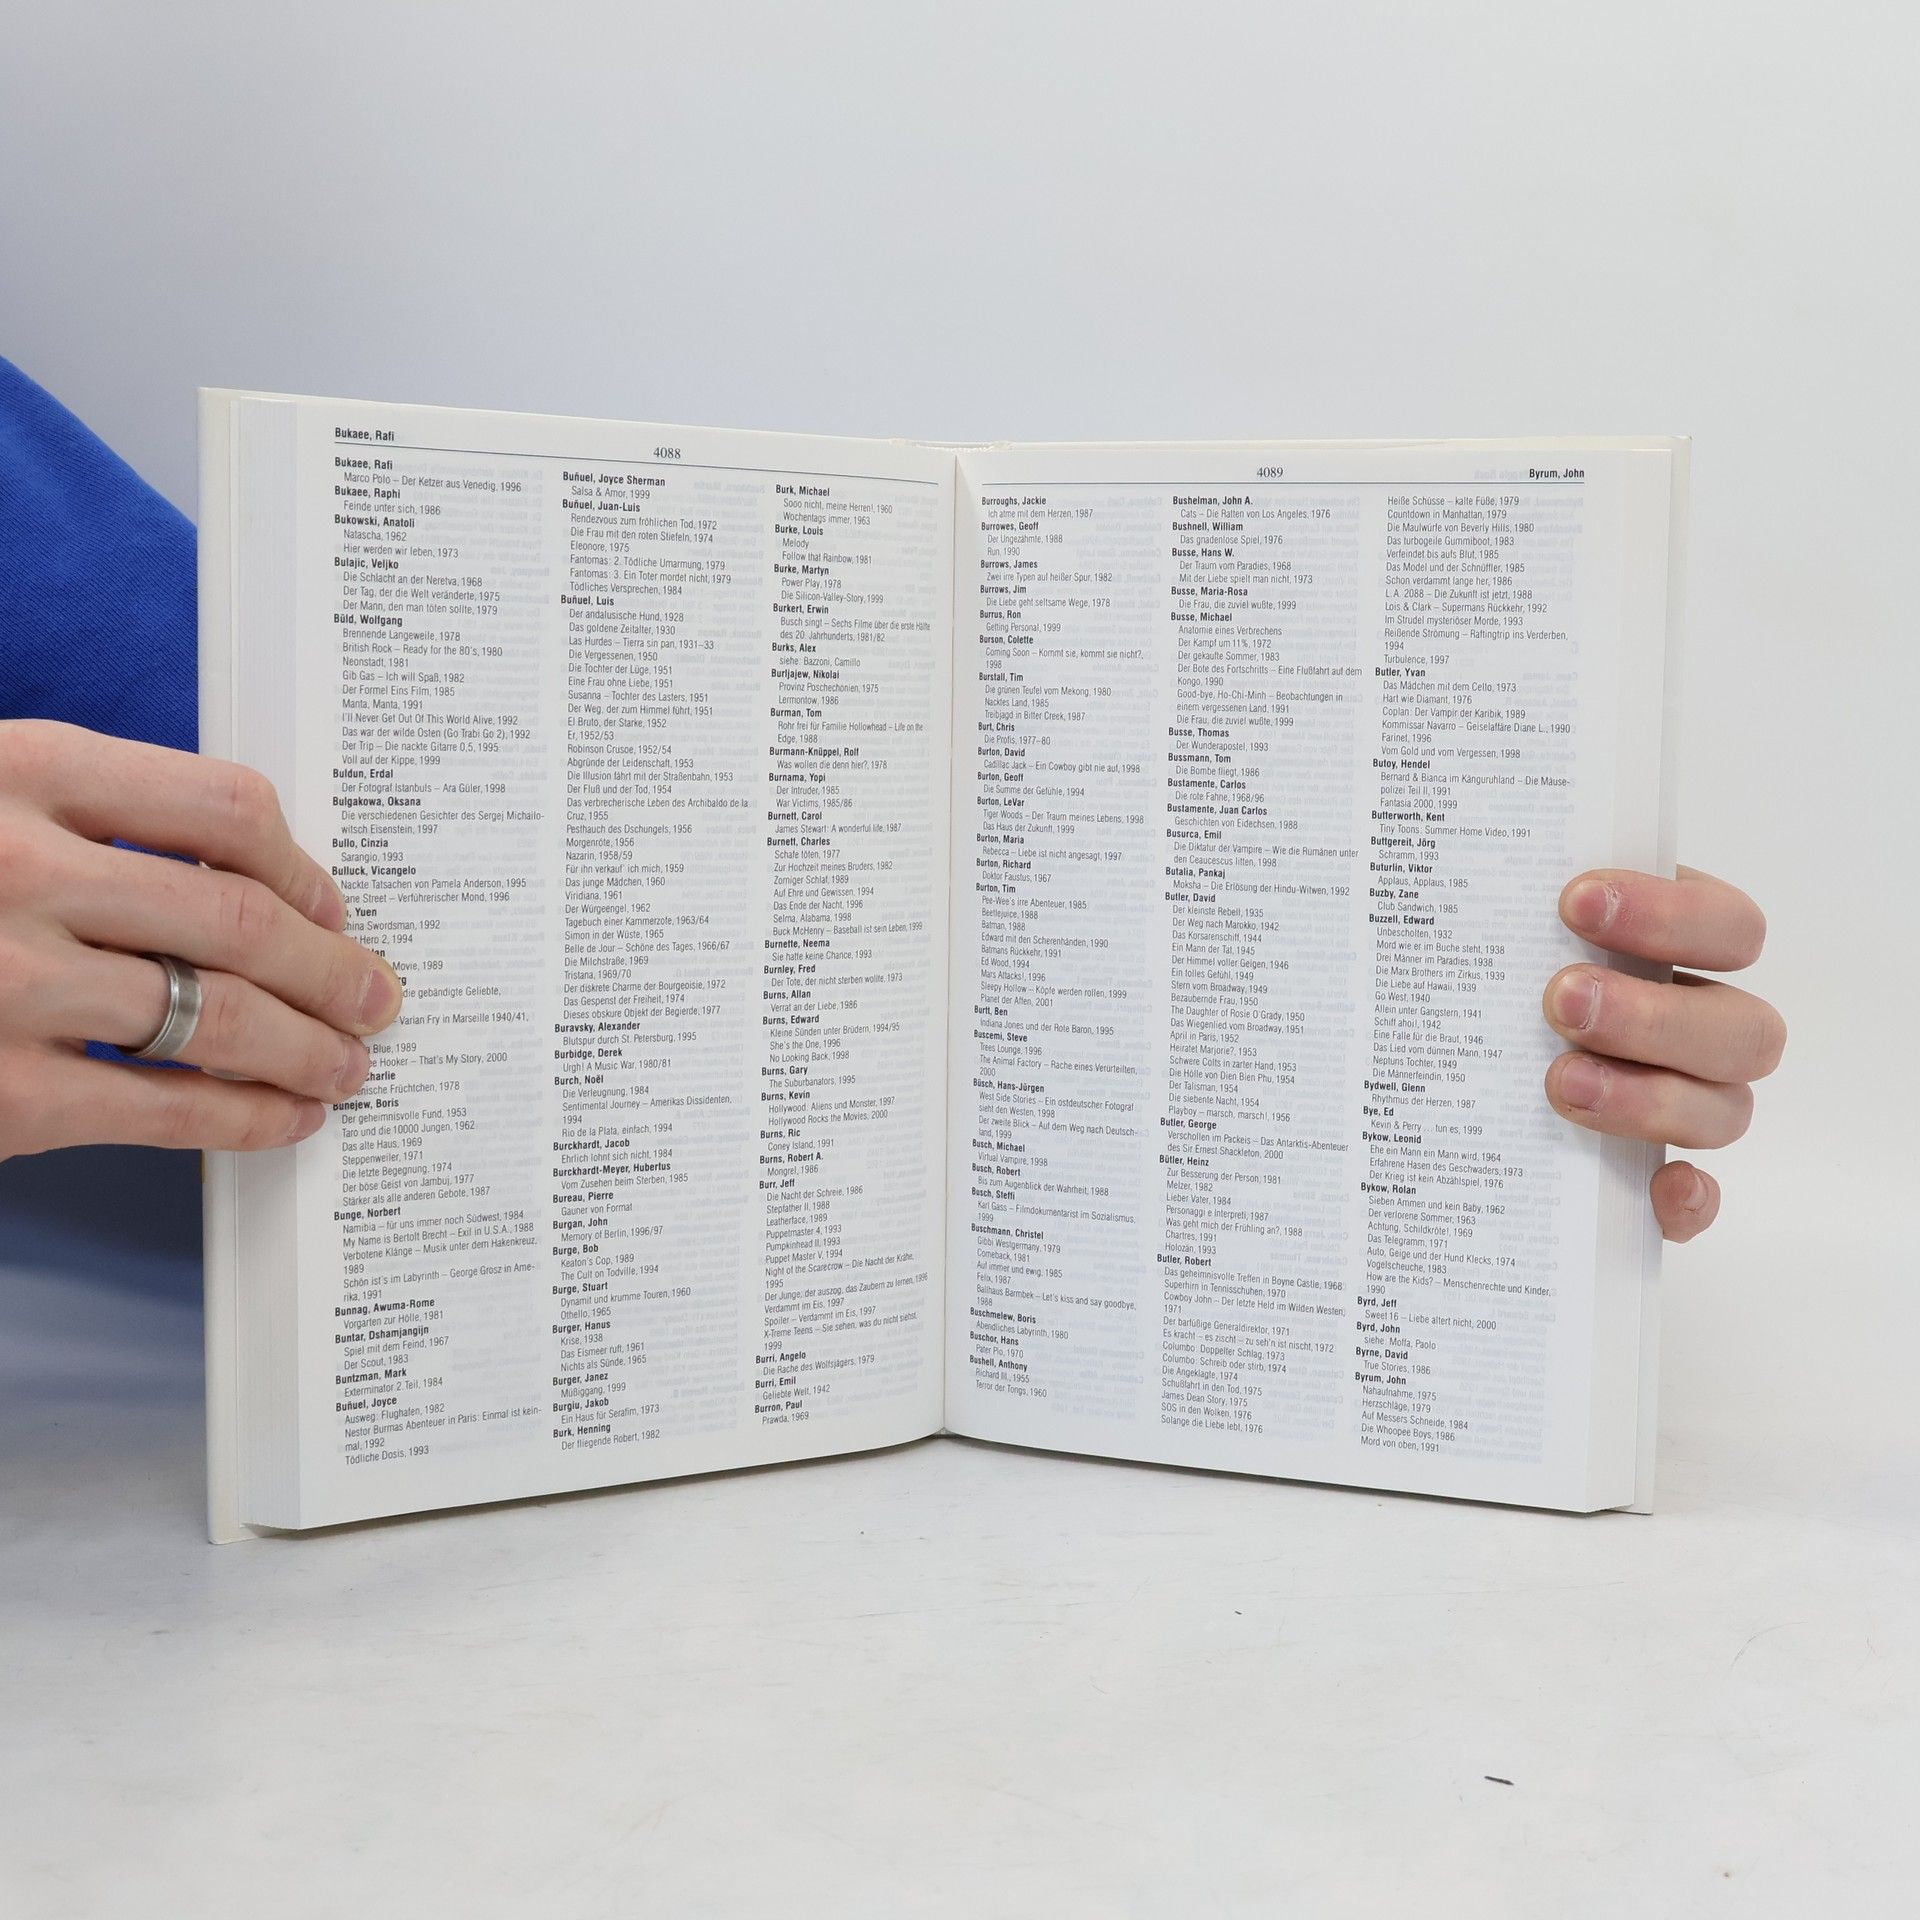 Bukaee, Rafi
4088
Bukaee, Rafi
Marco Polo – Der Ketzer aus Venedig, 1996
Bukaee, Raphi
Feinde unter sich, 1986
Bukowski, Anatoli
Natascha, 1962
Hier werden wir leben, 1973
Bulajic, Veljko
Die Schlacht an der Neretva, 1968
Der Tag, der die Welt veränderte, 1975
Der Mann, den man töten sollte, 1979
Büld, Wolfgang
Brennende Langeweile, 1978
British Rock – Ready for the 80's, 1980
Neonstadt, 1981
Gib Gas – Ich will Spaß, 1982
Der Formel Eins Film, 1985
Manta, Manta, 1991
I'll Never Get Out Of This World Alive, 1992
Das war der wilde Osten (Go Trabi Go 2), 1992
Der Trip – Die nackte Gitarre 0,5, 1995
Voll auf der Kippe, 1999
Buldun, Erdal
Der Fotograf Istanbuls – Ara Güler, 1998
Bulgakowa, Oksana
Die verschiedenen Gesichter des Sergej Michailo-
witsch Eisenstein, 1997
Bullo, Cinzia
Sarangio, 1993
Bulluck, Vicangelo
Nackte Tatsachen von Pamela Anderson, 1995
ane Street – Verführerischer Mond, 1996
, Yuen
China Swordsman, 1992
Hero 2, 1994
Movie, 1989
rg
die gebändigte Geliebte,
– Varian Fry in Marseille 1940/41,
Blue, 1989
ee Hooker – That's My Story, 2000
Charlie
enische Früchtchen, 1978
Bunejew, Boris
Der geheimnisvolle Fund, 1953
Taro und die 10000 Jungen, 1962
Das alte Haus, 1969
Steppenweiler, 1971
Die letzte Begegnung, 1974
Der böse Geist von Jambuj, 1977
Stärker als alle anderen Gebote, 1987
Bunge, Norbert
Namibia – für uns immer noch Südwest, 1984
My Name is Bertolt Brecht – Exil in U.S.A., 1988
Verbotene Klänge – Musik unter dem Hakenkreuz,
1989
Schön ist's im Labyrinth – George Grosz in Ame-
rika, 1991
Bunnag, Awuma-Rome
Vorgarten zur Hölle, 1981
Buntar, Dshamjangijn
Spiel mit dem Feind, 1967
Der Scout, 1983
Buntzman, Mark
Exterminator 2. Teil, 1984
Buñuel, Joyce
Ausweg: Flughafen, 1982
Nestor Burmas Abenteuer in Paris: Einmal ist kein-
mal, 1992
Tödliche Dosis, 1993
Buñuel, Joyce Sherman
Salsa & Amor, 1999
Buñuel, Juan-Luis
Rendezvous zum fröhlichen Tod, 1972
Die Frau mit den roten Stiefeln, 1974
Eleonore, 1975
Fantomas: 2. Tödliche Umarmung, 1979
Fantomas: 3. Ein Toter mordet nicht, 1979
Tödliches Versprechen, 1984
Buñuel, Luis
Der andalusische Hund, 1928
Das goldene Zeitalter, 1930
Las Hurdes – Tierra sin pan, 1931–33
Die Vergessenen, 1950
Die Tochter der Lüge, 1951
Eine Frau ohne Liebe, 1951
Susanna – Tochter des Lasters, 1951
Der Weg, der zum Himmel führt, 1951
El Bruto, der Starke, 1952
Er, 1952/53
Robinson Crusoe, 1952/54
Abgründe der Leidenschaft, 1953
Die Illusion fährt mit der Straßenbahn, 1953
Der Fluß und der Tod, 1954
Das verbrecherische Leben des Archibaldo de la
Cruz, 1955
Pesthauch des Dschungels, 1956
Morgenröte, 1956
Nazarin, 1958/59
Für ihn verkauf' ich mich, 1959
Das junge Mädchen, 1960
Viridiana, 1961
Der Würgeengel, 1962
Tagebuch einer Kammerzofe, 1963/64
Simon in der Wüste, 1965
Belle de Jour – Schöne des Tages, 1966/67
Die Milchstraße, 1969
Tristana, 1969/70
Der diskrete Charme der Bourgeoisie, 1972
Das Gespenst der Freiheit, 1974
Dieses obskure Objekt der Begierde, 1977
Buravsky, Alexander
Blutspur durch St. Petersburg, 1995
Burbidge, Derek
Urgh! A Music War, 1980/81
Burch, Noël
Die Verleugnung, 1984
Sentimental Journey – Amerikas Dissidenten,
1994
Rio de la Plata, einfach, 1994
Burckhardt, Jacob
Ehrlich lohnt sich nicht, 1984
Burckhardt-Meyer, Hubertus
Vom Zusehen beim Sterben, 1985
Bureau, Pierre
Gauner von Format
Burgan, John
Memory of Berlin, 1996/97
Burge, Bob
Keaton's Cop, 1989
The Cult on Todville, 1994
Burge, Stuart
Dynamit und krumme Touren, 1960
Othello, 1965
Burger, Hanus
Krise, 1938
Das Eismeer ruft, 1961
Nichts als Sünde, 1965
Burger, Janez
Müßiggang, 1999
Burgiu, Jakob
Ein Haus für Serafim, 1973
Burk, Henning
Der fliegende Robert, 1982
Burk, Michael
Sooo nicht, meine Herren!, 1960
Wochentags immer, 1963
Burke, Louis
Melody
Follow that Rainbow, 1981
Burke, Martyn
Power Play, 1978
Die Silicon-Valley-Story, 1999
Burkert, Erwin
Busch singt – Sechs Filme über die erste Hälfte
des 20. Jahrhunderts, 1981/82
Burks, Alex
siehe: Bazzoni, Camillo
Burljajew, Nikolai
Provinz Poschechonien, 1975
Lermontow, 1986
Burman, Tom
Rohr frei für Familie Hollowhead – Life on the
Edge, 1988
Burmann-Knüppel, Rolf
Was wollen die denn hier?, 1978
Burnama, Yopi
Der Intruder, 1985
War Victims, 1985/86
Burnett, Carol
James Stewart: A wonderful life, 1987
Burnett, Charles
Schafe töten, 1977
Zur Hochzeit meines Bruders, 1982
Zorniger Schlaf, 1989
Auf Ehre und Gewissen, 1994
Das Ende der Nacht, 1996
Selma, Alabama, 1998
Buck McHenry – Baseball ist sein Leben, 1999
Burnette, Neema
Sie hatte keine Chance, 1993
Burnley, Fred
Der Tote, der nicht sterben wollte, 1973
Burns, Allan
Verrat an der Liebe, 1986
Burns, Edward
Kleine Sünden unter Brüdern, 1994/95
She's the One, 1996
No Looking Back, 1998
Burns, Gary
The Suburbanators, 1995
Burns, Kevin
Hollywood: Aliens und Monster, 1997
Hollywood Rocks the Movies, 2000
Burns, Ric
Coney Island, 1991
Burns, Robert A.
Mongrel, 1986
Burr, Jeff
Die Nacht der Schreie, 1986
Stepfather II, 1988
Leatherface, 1989
Puppetmaster 4, 1993
Pumpkinhead II, 1993
Puppet Master V, 1994
Night of the Scarecrow – Die Nacht der Krähe,
1995
Der Junge, der auszog, das Zaubern zu lernen, 1996
Verdammt im Eis, 1997
Spoiler – Verdammt im Eis, 1997
X-Treme Teens – Sie sehen, was du nicht siehst,
1999
Burri, Angelo
Die Rache des Wolfsjägers, 1979
Burri, Emil
Geliebte Welt, 1942
Burron, Paul
Prawda, 1969
4089
Byrum, John
Burroughs, Jackie
Ich atme mit dem Herzen, 1987
Burrowes, Geoff
Der Ungezähmte, 1988
Run, 1990
Burrows, James
Zwei irre Typen auf heißer Spur, 1982
Burrows, Jim
Die Liebe geht seltsame Wege, 1978
Burrus, Ron
Getting Personal, 1999
Burson, Colette
Coming Soon – Kommt sie, kommt sie nicht?,
1998
Burstall, Tim
Die grünen Teufel vom Mekong, 1980
Nacktes Land, 1985
Treibjagd in Bitter Creek, 1987
Burt, Chris
Die Profis, 1977–80
Burton, David
Cadillac Jack – Ein Cowboy gibt nie auf, 1998
Burton, Geoff
Die Summe der Gefühle, 1994
Burton, LeVar
Tiger Woods – Der Traum meines Lebens, 1998
Das Haus der Zukunft, 1999
Burton, Maria
Rebecca – Liebe ist nicht angesagt, 1997
Burton, Richard
Doktor Faustus, 1967
Burton, Tim
Pee-Wee's irre Abenteuer, 1985
Beetlejuice, 1988
Batman, 1988
Edward mit den Scherenhänden, 1990
Batmans Rückkehr, 1991
Ed Wood, 1994
Mars Attacks!, 1996
Sleepy Hollow – Köpfe werden rollen, 1999
Planet der Affen, 2001
Burtt, Ben
Indiana Jones und der Rote Baron, 1995
Buscemi, Steve
Trees Lounge, 1996
The Animal Factory – Rache eines Verurteilten,
2000
Büsch, Hans-Jürgen
West Side Stories – Ein ostdeutscher Fotograf
sieht den Westen, 1998
Der zweite Blick – Auf dem Weg nach Deutsch-
land, 1999
Busch, Michael
Virtual Vampire, 1998
Busch, Robert
Bis zum Augenblick der Wahrheit, 1988
Busch, Steffi
Karl Gass – Filmdokumentarist im Sozialismus,
1999
Buschmann, Christel
Gibbi Westgermany, 1979
Comeback, 1981
Auf immer und ewig, 1985
Felix, 1987
Ballhaus Barmbek – Let's kiss and say goodbye,
1988
Buschmelew, Boris
Abendliches Labyrinth, 1980
Buschor, Hans
Pater Pio, 1970
Bushell, Anthony
Richard III., 1955
Terror der Tongs, 1960
Bushelman, John A.
Cats – Die Ratten von Los Angeles, 1976
Bushnell, William
Das gnadenlose Spiel, 1976
Busse, Hans W.
Der Traum vom Paradies, 1968
Mit der Liebe spielt man nicht, 1973
Busse, Maria-Rosa
Die Frau, die zuviel wußte, 1999
Busse, Michael
Anatomie eines Verbrechens
Der Kampf um 11%, 1972
Der gekaufte Sommer, 1983
Der Bote des Fortschritts – Eine Flußfahrt auf dem
Kongo, 1990
Good-bye, Ho-Chi-Minh – Beobachtungen in
einem vergessenen Land, 1991
Die Frau, die zuviel wußte, 1999
Busse, Thomas
Der Wunderapostel, 1993
Bussmann, Tom
Die Bombe fliegt, 1986
Bustamente, Carlos
Die rote Fahne, 1968/96
Bustamente, Juan Carlos
Geschichten von Eidechsen, 1988
Busurca, Emil
Die Diktatur der Vampire – Wie die Rumänen unter
den Ceaucescus litten, 1998
Butalia, Pankaj
Moksha – Die Erlösung der Hindu-Witwen, 1992
Butler, David
Der kleinste Rebell, 1935
Der Weg nach Marokko, 1942
Das Korsarenschiff, 1944
Ein Mann der Tat, 1945
Der Himmel voller Geigen, 1946
Ein tolles Gefühl, 1949
Stern vom Broadway, 1949
Bezaubernde Frau, 1950
The Daughter of Rosie O'Grady, 1950
Das Wiegenlied vom Broadway, 1951
April in Paris, 1952
Heiratet Marjorie?, 1953
Schwere Colts in zarter Hand, 1953
Die Hölle von Dien Bien Phu, 1954
Der Talisman, 1954
Die siebente Nacht, 1954
Playboy – marsch, marsch!, 1956
Butler, George
Verschollen im Packeis – Das Antarktis-Abenteuer
des Sir Ernest Shackleton, 2000
Bütler, Heinz
Zur Besserung der Person, 1981
Melzer, 1982
Lieber Vater, 1984
Personaggi e Interpreti, 1987
Was geht mich der Frühling an?, 1988
Chartres, 1991
Holozän, 1993
Butler, Robert
Das geheimnisvolle Treffen in Boyne Castle, 1968
Superhirn in Tennisschuhen, 1970
Cowboy John – Der letzte Held im Wilden Westen,
1971
Der barfüßige Generaldirektor, 1971
Es kracht – es zischt – zu seh'n ist nischt, 1972
Columbo: Doppelter Schlag, 1973
Columbo: Schreib oder stirb, 1974
Die Angeklagte, 1974
Schußfahrt in den Tod, 1975
James Dean Story, 1975
SOS in den Wolken, 1976
Solange die Liebe lebt, 1976
Heiße Schüsse – kalte Füße, 1979
Countdown in Manhattan, 1979
Die Maulwürfe von Beverly Hills, 1980
Das turbogeile Gummiboot, 1983
Verfeindet bis aufs Blut, 1985
Das Model und der Schnüffler, 1985
Schon verdammt lange her, 1986
L.A. 2088 – Die Zukunft ist jetzt, 1988
Lois & Clark – Supermans Rückkehr, 1992
Im Strudel mysteriöser Morde, 1993
Reißende Strömung – Raftingtrip ins Verderben,
1994
Turbulence, 1997
Butler, Yvan
Das Mädchen mit dem Cello, 1973
Hart wie Diamant, 1976
Coplan: Der Vampir der Karibik, 1989
Kommissar Navarro – Geiselaffäre Diane L., 1990
Farinet, 1996
Vom Gold und vom Vergessen, 1998
Butoy, Hendel
Bernard & Bianca im Känguruhland – Die Mäuse-
polizei Teil II, 1991
Fantasia 2000, 1999
Butterworth, Kent
Tiny Toons: Summer Home Video, 1991
Buttgereit, Jörg
Schramm, 1993
Buturlin, Viktor
Applaus, Applaus, 1985
Buzby, Zane
Club Sandwich, 1985
Buzzell, Edward
Unbescholten, 1932
Mord wie er im Buche steht, 1938
Drei Männer im Paradies, 1938
Die Marx Brothers im Zirkus, 1939
Die Liebe auf Hawaii, 1939
Go West, 1940
Allein unter Gangstern, 1941
Schiff ahoi!, 1942
Eine Falle für die Braut, 1946
Das Lied vom dünnen Mann, 1947
Neptuns Tochter, 1949
Die Männerfeindin, 1950
Bydwell, Glenn
Rhythmus der Herzen, 1987
Bye, Ed
Kevin & Perry ... tun es, 1999
Bykow, Leonid
Ehe ein Mann ein Mann wird, 1964
Erfahrene Hasen des Geschwaders, 1973
Der Krieg ist kein Abzählspiel, 1976
Bykow, Rolan
Sieben Ammen und kein Baby, 1962
Der verlorene Sommer, 1963
Achtung, Schildkröte!, 1969
Das Telegramm, 1971
Auto, Geige und der Hund Klecks, 1974
Vogelscheuche, 1983
How are the Kids? – Menschenrechte und Kinder,
1990
Byrd, Jeff
Sweet 16 – Liebe altert nicht, 2000
Byrd, John
siehe: Moffa, Paolo
Byrne, David
True Stories, 1986
Byrum, John
Nahaufnahme, 1975
Herzschläge, 1979
Auf Messers Schneide, 1984
Die Whoopee Boys, 1986
Mord von oben, 1991